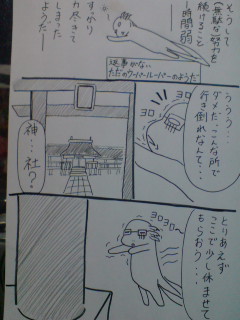 そうして
無駄な努力を
続けること
一時間弱
すっかり
力尽きて
しまった
ようだ
返事がない
ただのウーパールーパーのようだ
ううう…
ダメだ、こんな所で
行き倒れなんて…
ヨロ
ヨロ
神…社？
とりあえず
ここで少し休ませて
もらおう…
ヨロヨロ～